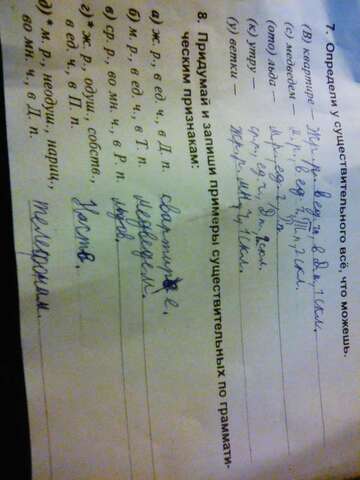 7. Определи у существительного всё, что можешь.
(В) квартире – Ж.р. в ед. ч в Д.п, 1 скл.
(с) медведем – м.р., в ед. ч, Т.п, 2 скл.
(ото) льда – м.р., ед. ч,
(к) утру – ср.р., ед. ч, Д.п, 2 скл.
(у) ветки – ж.р., 1 скл.
8. Придумай и запиши примеры существительных по граммати-
ческим признакам:
а) ж. р., в ед. ч., в Д. п. квартире.
б) м. р., в ед. ч., в Т. п. медведем.
в) ср. р., во мн. ч., в Р. п.
г)* ж. р., одуш., собств.,
в ед. ч., в П. п. Насть.
д)* м. р., неодуш., нариц.,
во мн. ч., в Д. п. телефонам.